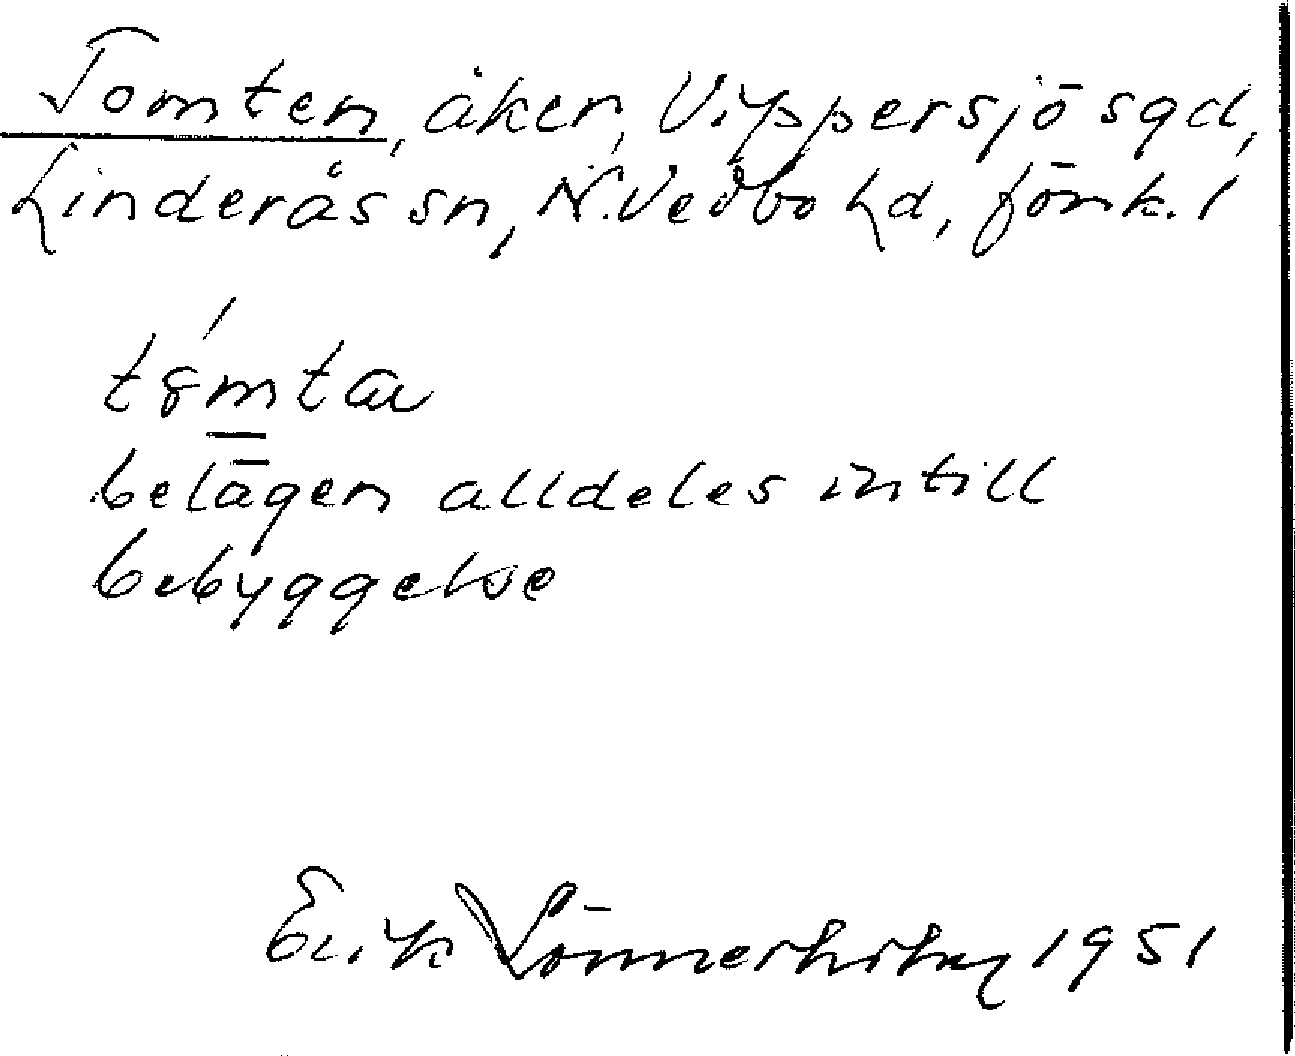 Tomten, åker, Vippersjö sgd,
Linderås sn, N. Vedbo hd, förk. 1
belägen alldeles intill
bebyggelse
Erik Lönnerholm 1951